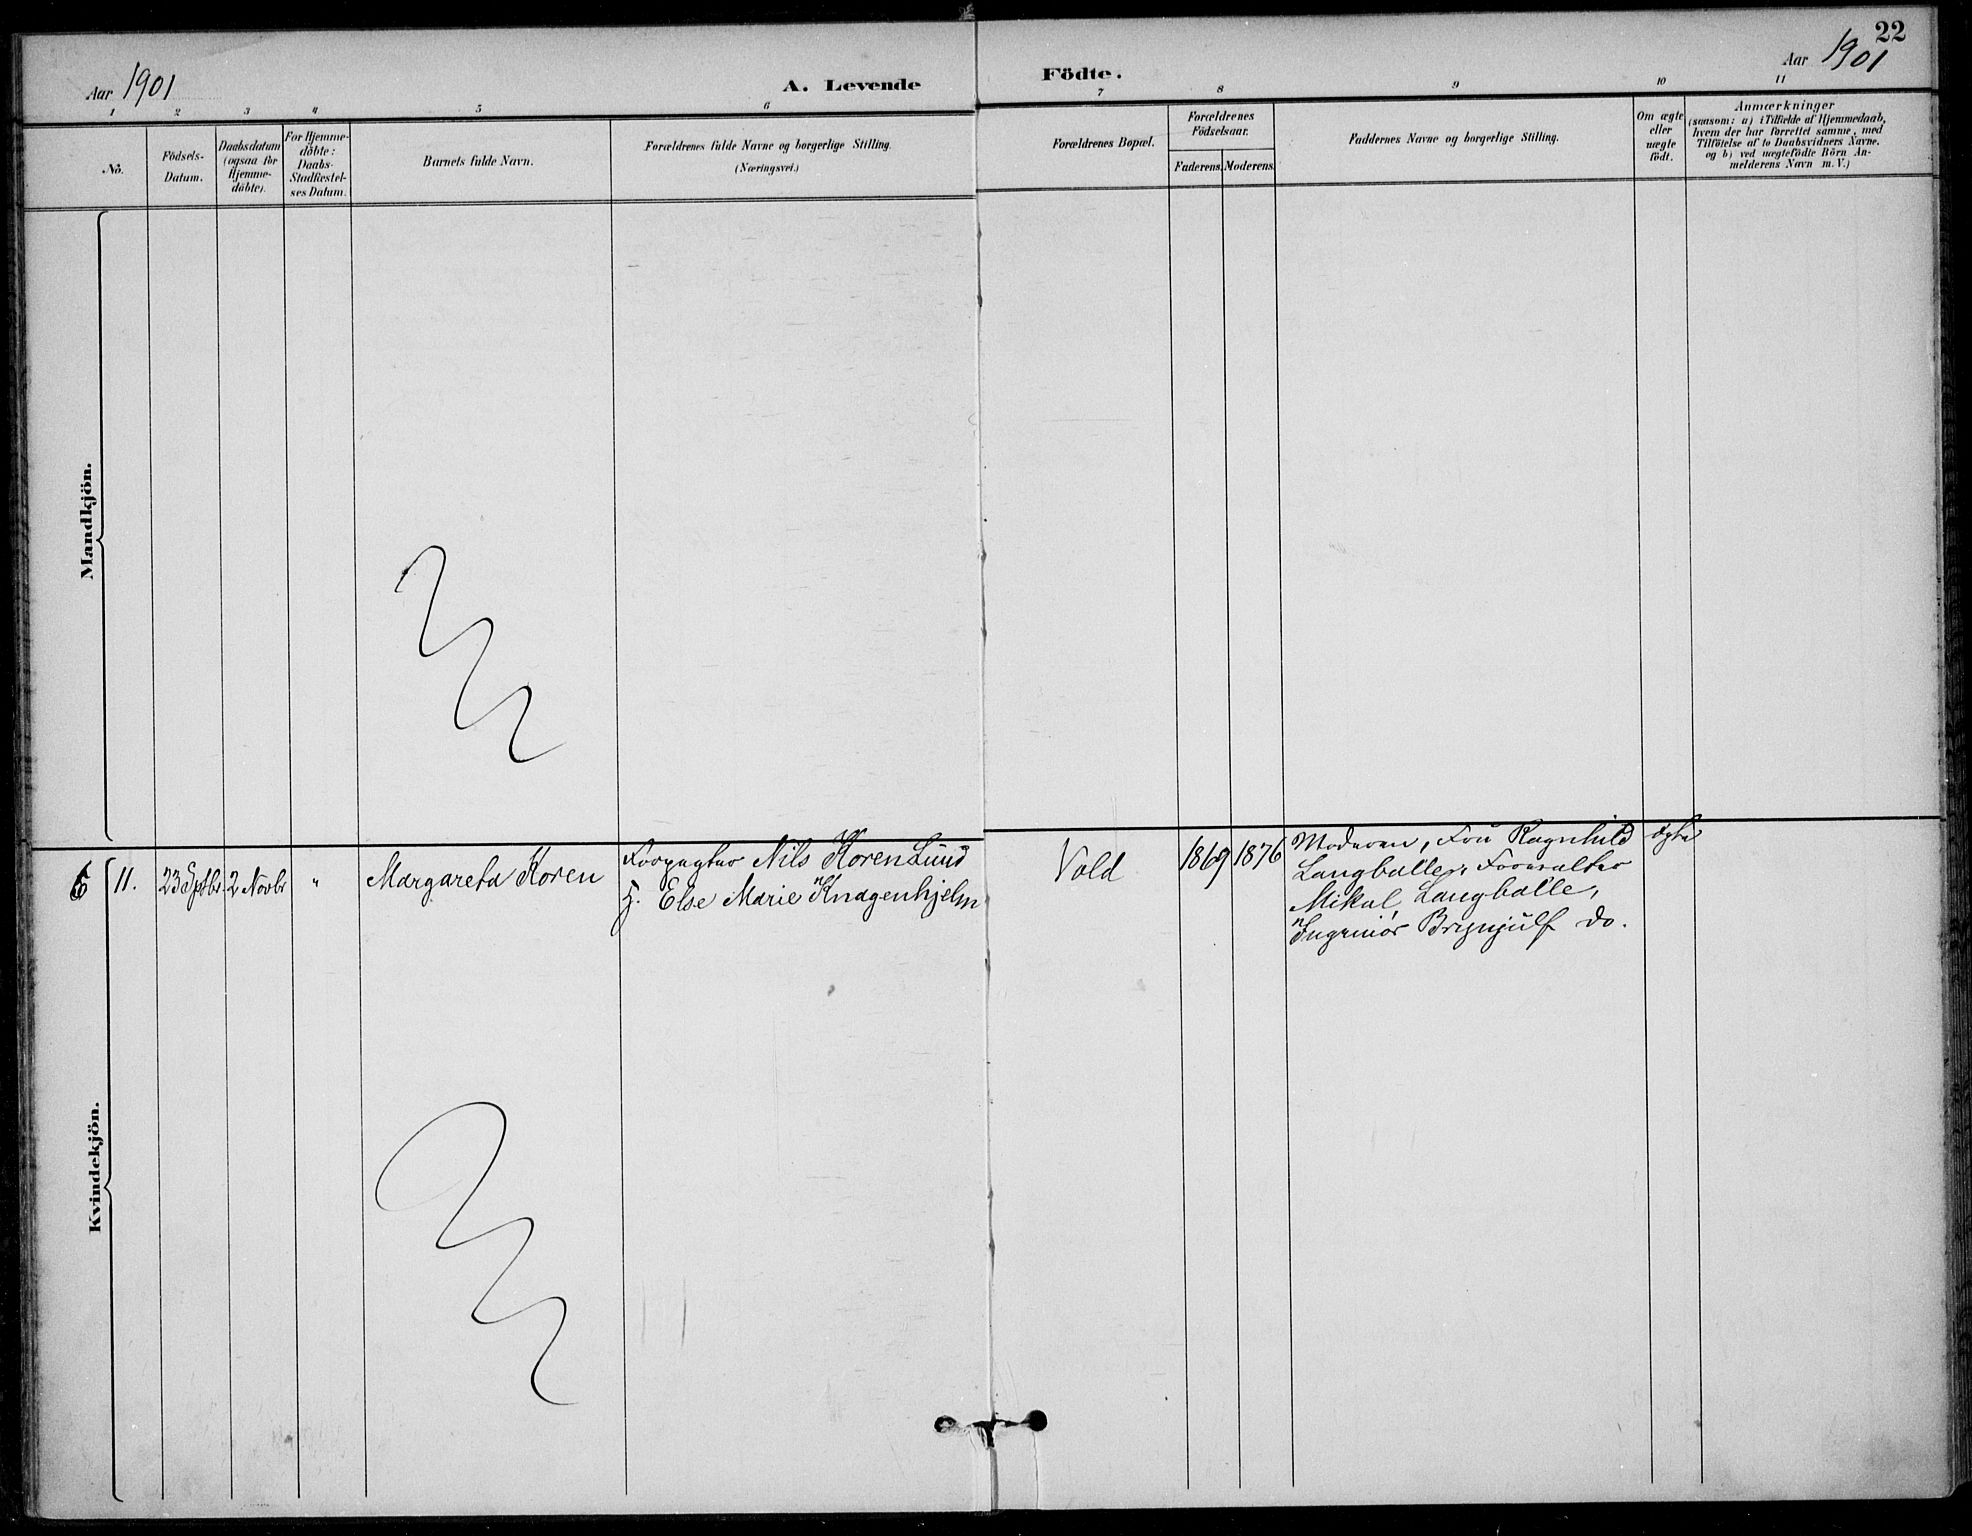 22
Aar 1901
A. Levende Födte.
Aar 1901
1 2 3 4 5 6 7 8 9 10 11
No.
Födsels-
Datum.
Daabsdatum
(ogsaa for
Hjemme-
döbte).
For Hjemme-
döbte:
Daabs-
Stadfæstel-
ses Datum.
Barnets fulde Navn.
Forældrenes fulde Navne og borgerlige Stilling.
(Næringsvei.)
Forældrenes Bopæl.
Forældrenes
Födselsaar.
Faderens. Moderens.
Faddernes Navne og borgerlige Stilling.
Om ægte
eller
uægte
födt.
Anmærkninger
(saasom: a) i Tilfælde af Hjemmedaab,
hvem der har forrettet samme, med
Tilföielse af to Daabsvidners Navne,
og b) ved uægtefödte Börn An-
melderens Navn m. V.)
Mandkjön.
Kvindekjön.
6 11. 23 Sptbr 2 Novbr " Margareta Koren
Forpagter Nils Koren Lund
H. Else Marie Knagenhjelm
Vold
1869 1876
Moderen, Fru Ragnhild
Langballe, Forvalter
Mikal Langballe,
Ingeniør Brynjulf do.
ægte